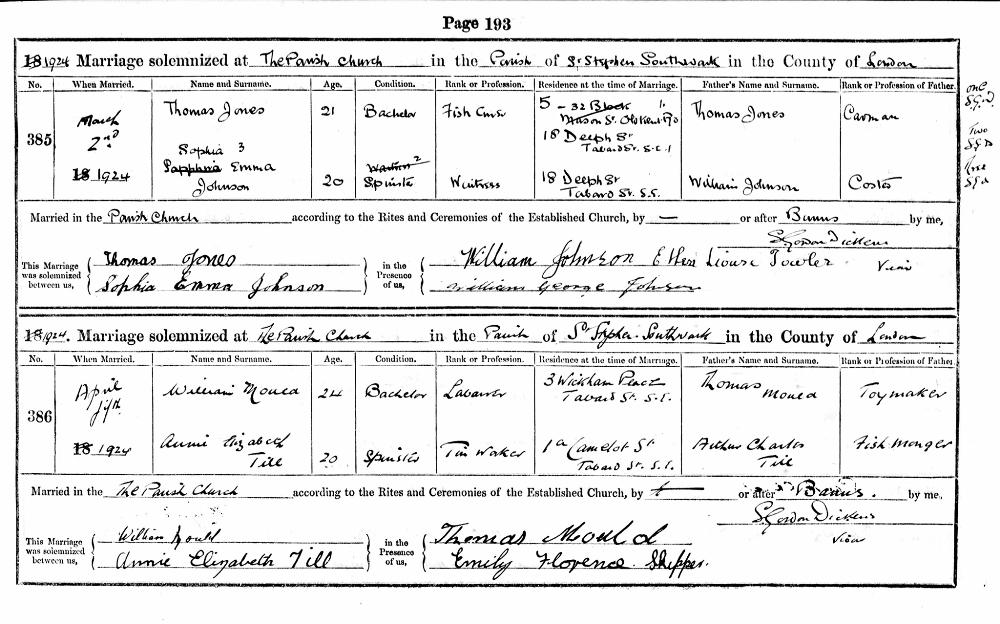 Page 193
18 1924 Marriage solemnized at The Parish Church in the Parish of St Stephen Southwark in the County of London
No. When Married. Name and Surname. Age. Condition. Rank or Profession. Residence at the time of Marriage. Father's Name and Surname. Rank or Profession of Father.
385 March 2nd 18 1924
Thomas Jones 21 Bachelor Fish 5 - 32 Block Mason St. Old Kent Rd Thomas Jones Carman
18 Deeph St Tabard St. S.E.1
Sophia 3
Sapphira Emma Johnson 20 Spinster Waitress 18 Deeph St Tabard St. S.E. William Johnson Coster
one
Two
Three
Married in the Parish Church according to the Rites and Ceremonies of the Established Church, by — or after Banns by me,
S Gordon Dickens
Vicar
This Marriage was solemnized between us, Thomas Jones in the Presence of us, William Johnson Ellen Louise Fowler
Sophia Emma Johnson William George Johnson
18 1924. Marriage solemnized at The Parish Church in the Parish of St Stephen Southwark in the County of London
No. When Married. Name and Surname. Age. Condition. Rank or Profession. Residence at the time of Marriage. Father's Name and Surname. Rank or Profession of Father.
386 April fifth 18 1924
William Mould 24 Bachelor Labourer 3 Wickham Place Tabard St. S.E. Thomas Mould Toymaker
Annie Elizabeth Till 20 Spinster Tin Worker 1a Camelot St Tabard St. S.E. Arthur Charles Till Fishmonger
Married in the The Parish Church according to the Rites and Ceremonies of the Established Church, by or after Banns. by me.
S Gordon Dickens
Vicar
This Marriage was solemnized between us, William Mould in the Presence of us, Thomas Mould
Annie Elizabeth Till Emily Florence Skipper.